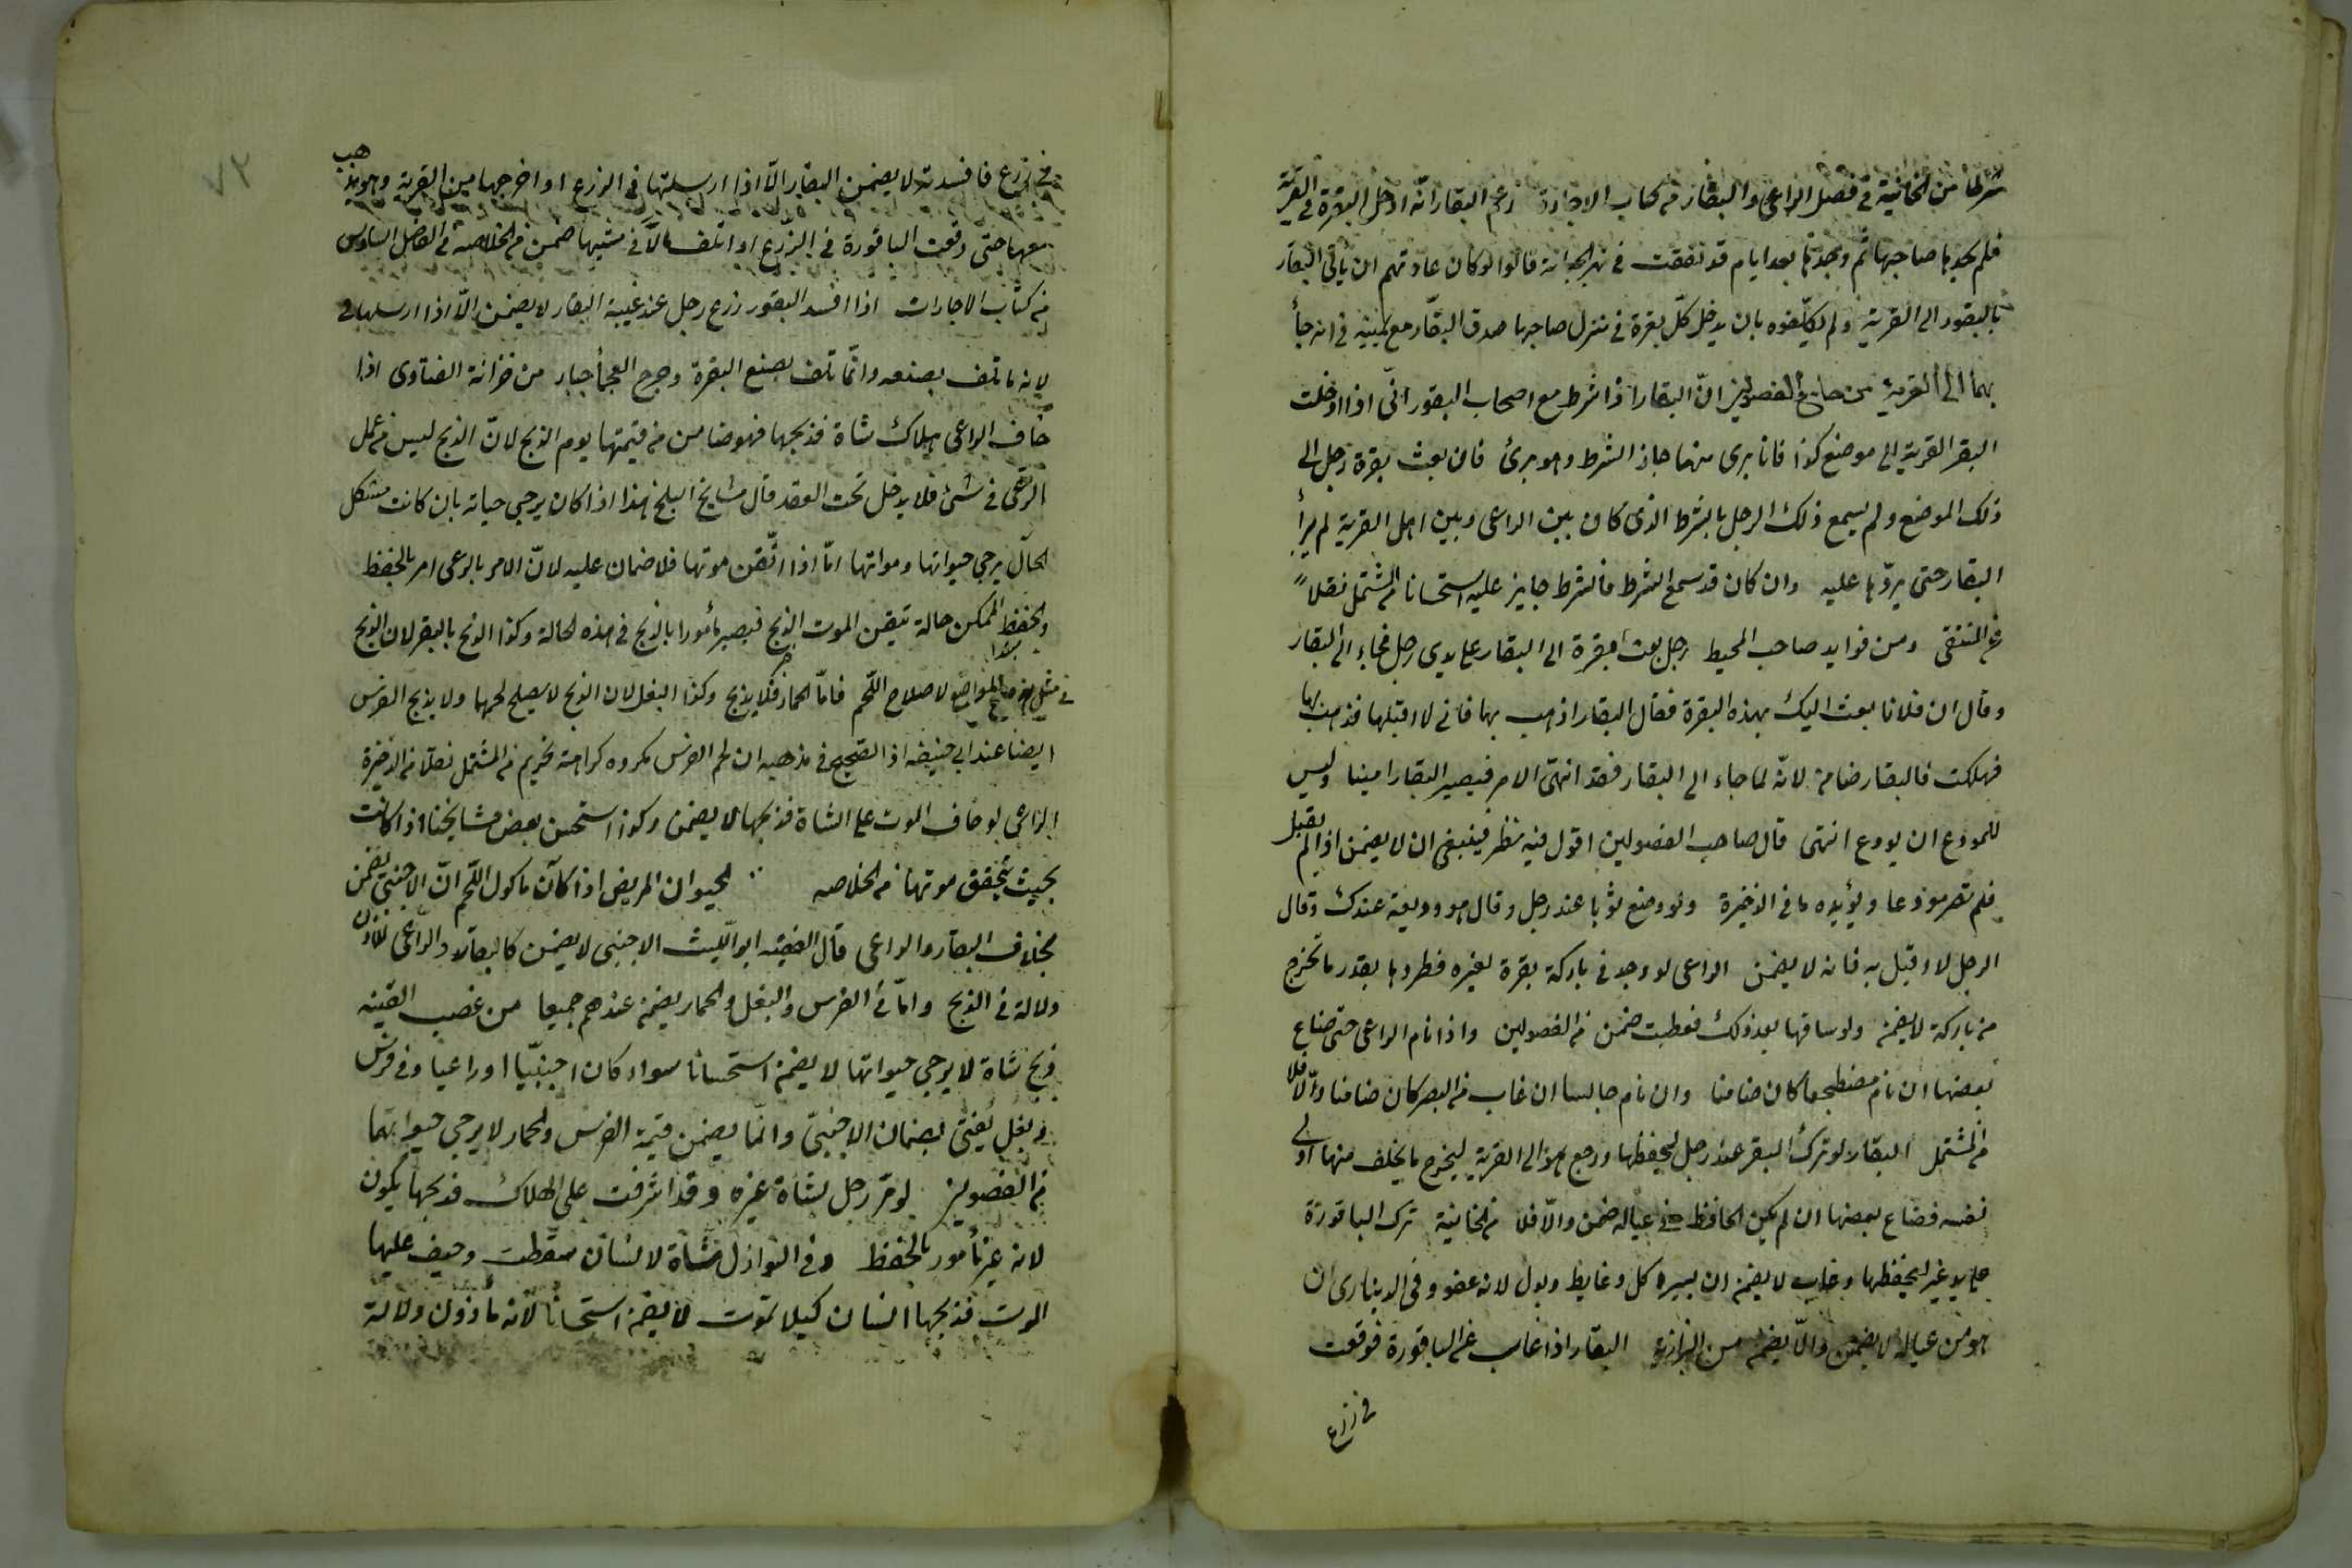 شرطا من الخانية في فصل الراعي والبقار من كتاب الاجارة زعم البقار انّه ادخل البقرة في القرية
فلم يجدها صاحبها ثم وجدها بعد ايام قد نفقت في نهر الجبانة قالوا لو كان عادتهم ان يأتي البقار
بالبقور الى القرية ولم يكلّفوه بان يدخل كلّ بقرة في منزل صاحبها صدق البقّار مع يمينه في انه جأ
بها الى القرية من جامع الفصولين انّ البقار اذا شرط مع اصحاب البقور انّي اذا ادخلت
البقر القرية الى موضع كذا فانا بري منها جاز الشرط وهو برئ فان بعث بقرة رجل الى
ذلك الموضع ولم يسمع ذلك الرجل بالشرط الذي كان بين الراعي وبين اهل القرية لم يبرأ
البقار حتى يردّها عليه وان كان قد سمع الشرط فالشرط جايز عليه استحسانا من المشتمل نقلاً
عن المنتقى ومن فوايد صاحب المحيط رجل بعث بقرة الى البقار على يدي رجل فجاء الى البقار
وقال ان فلانا بعث اليك بهذه البقرة فقال البقار اذهب بها فاني لا اقبلها فذهب بها
فهلكت فالبقار ضامن لانّه لما جاء الى البقار فقد انتهى الامر فيصير البقار امينا وليس
للمودع ان يودع انتهى قال صاحب الفصولين اقول فيه نظر فينبغي ان لا يضمن اذا لم يقبل
فلم تصر مودعا ويؤيده ما في الذخيرة ولو وضع ثوبا عند رجل وقال هو وديعة عندك وقال
الرجل لا اقبل به فانه لا يضمن الراعي لو وجد في باركه بقرة لغيره فطردها بقدر ما تخرج
من باركه لا يضمن ولو ساقها بعد ذلك فعطبت ضمن من الفصولين واذا نام الراعي حتى ضاع
بعضها ان نام مضطجعا كان ضامنا وان نام جالسا ان غاب من البصر كان ضامنا والّا فلا
من المشتمل البقار لو ترك البقر عند رجل ليحفظها ورجع هو الى القرية ليخرج ما يخلف منها اولى
نفسه فضاع بعضها ان لم يكن الحافظ في عياله ضمن والّا فلا من الخانية ترك الباقورة
على يد غير ليحفظها وغاب لا يضمن ان يسيرا كل وغايط وبول لانه عفو وفي الديناري ان
هو من عياله لا يضمن والّا يضمن من البزازية البقار اذا غاب عن الباقورة فوقعت
في زرع
٧٢
في زرع فافسدته لا يضمن البقار الّا اذا ارسلها في الزرع او اخرجها من القرية وهو يذهب
معها حتى وقعت الباقورة في الزرع او اتلف مالا في مشيها ضمن من الخلاصة في الفصل السادس
من كتاب الاجارات اذا افسد البقور زرع رجل عند غيبة البقار لا يضمن الّا اذا ارسلها
لانه ما تلف بصنعه وانّما تلف بصنع البقرة وجرح العجمأ جبار من خزانة الفتاوى اذا
خاف الراعي هلاك شاة فذبحها فهو ضامن من قيمتها يوم الذبح لانّ الذبح ليس من عمل
الرعي في شئ فلا يدخل تحت العقد قال مشايخ البلخ هذا اذا كان يرجى حياته بان كانت مشكل
الحال يرجى حيواتها ومواتها امّا اذا اتّقن موتها فلا ضمان عليه لانّ الامر بالرعي امر بالحفظ
والحفظ الممكن حالة تيقن الموت الذبح فيصير مأمورا بالذبح في هذه الحالة وكذا الذبح بالبقر لان الذبح
في مثل هذا المواضع لاصلاح اللحم فامّا الحمار فلا يذبح وكذا البغل لان الذبح لا يصلح لحمها ولا يذبح الفرس
ايضا عند ابي حنيفة اذ الصحيح في مذهبه ان لحم الفرس مكروه كراهة تحريم من المشتمل نقلا من الذخيرة
الراعي لو خاف الموت على الشاة فذبحها لا يضمن وكذا استحسن بعض مشايخنا اذا كانت
بحيث يتحقق موتها من الخلاصه الحيوان المريض اذا كان ماكول اللحم انّ الاجنبي يضمن
بخلاف البقار والراعي قال الفقيه ابو اللّيث الاجنبي لا يضمن كالبقار والراعي للاذن
دلالة في الذبح وامّا في الفرس والبغل والحمار يضمن عندهم جميعا من غصب القنيه
ذبح شاة لا يرجى حيواتها لا يضمن استحسانا سواء كان اجنبيّا او راعيا وفي فرس
وبغل يُفتى بضمان الاجنبيّ وانّما يضمن قيمة الفرس والحمار لا يرجى حيواتهما
من الفصولين لو مرّ رجل بشاة غيره وقد اشرفت على الهلاك فذبحها يكون
لانه غير مأمور بالحفظ وفي النوازل شاة لانسان سقطت وخيف عليها
الموت فذبحها انسان كيلا تموت لا يضمن استحسانا لانه ماذون دلالة